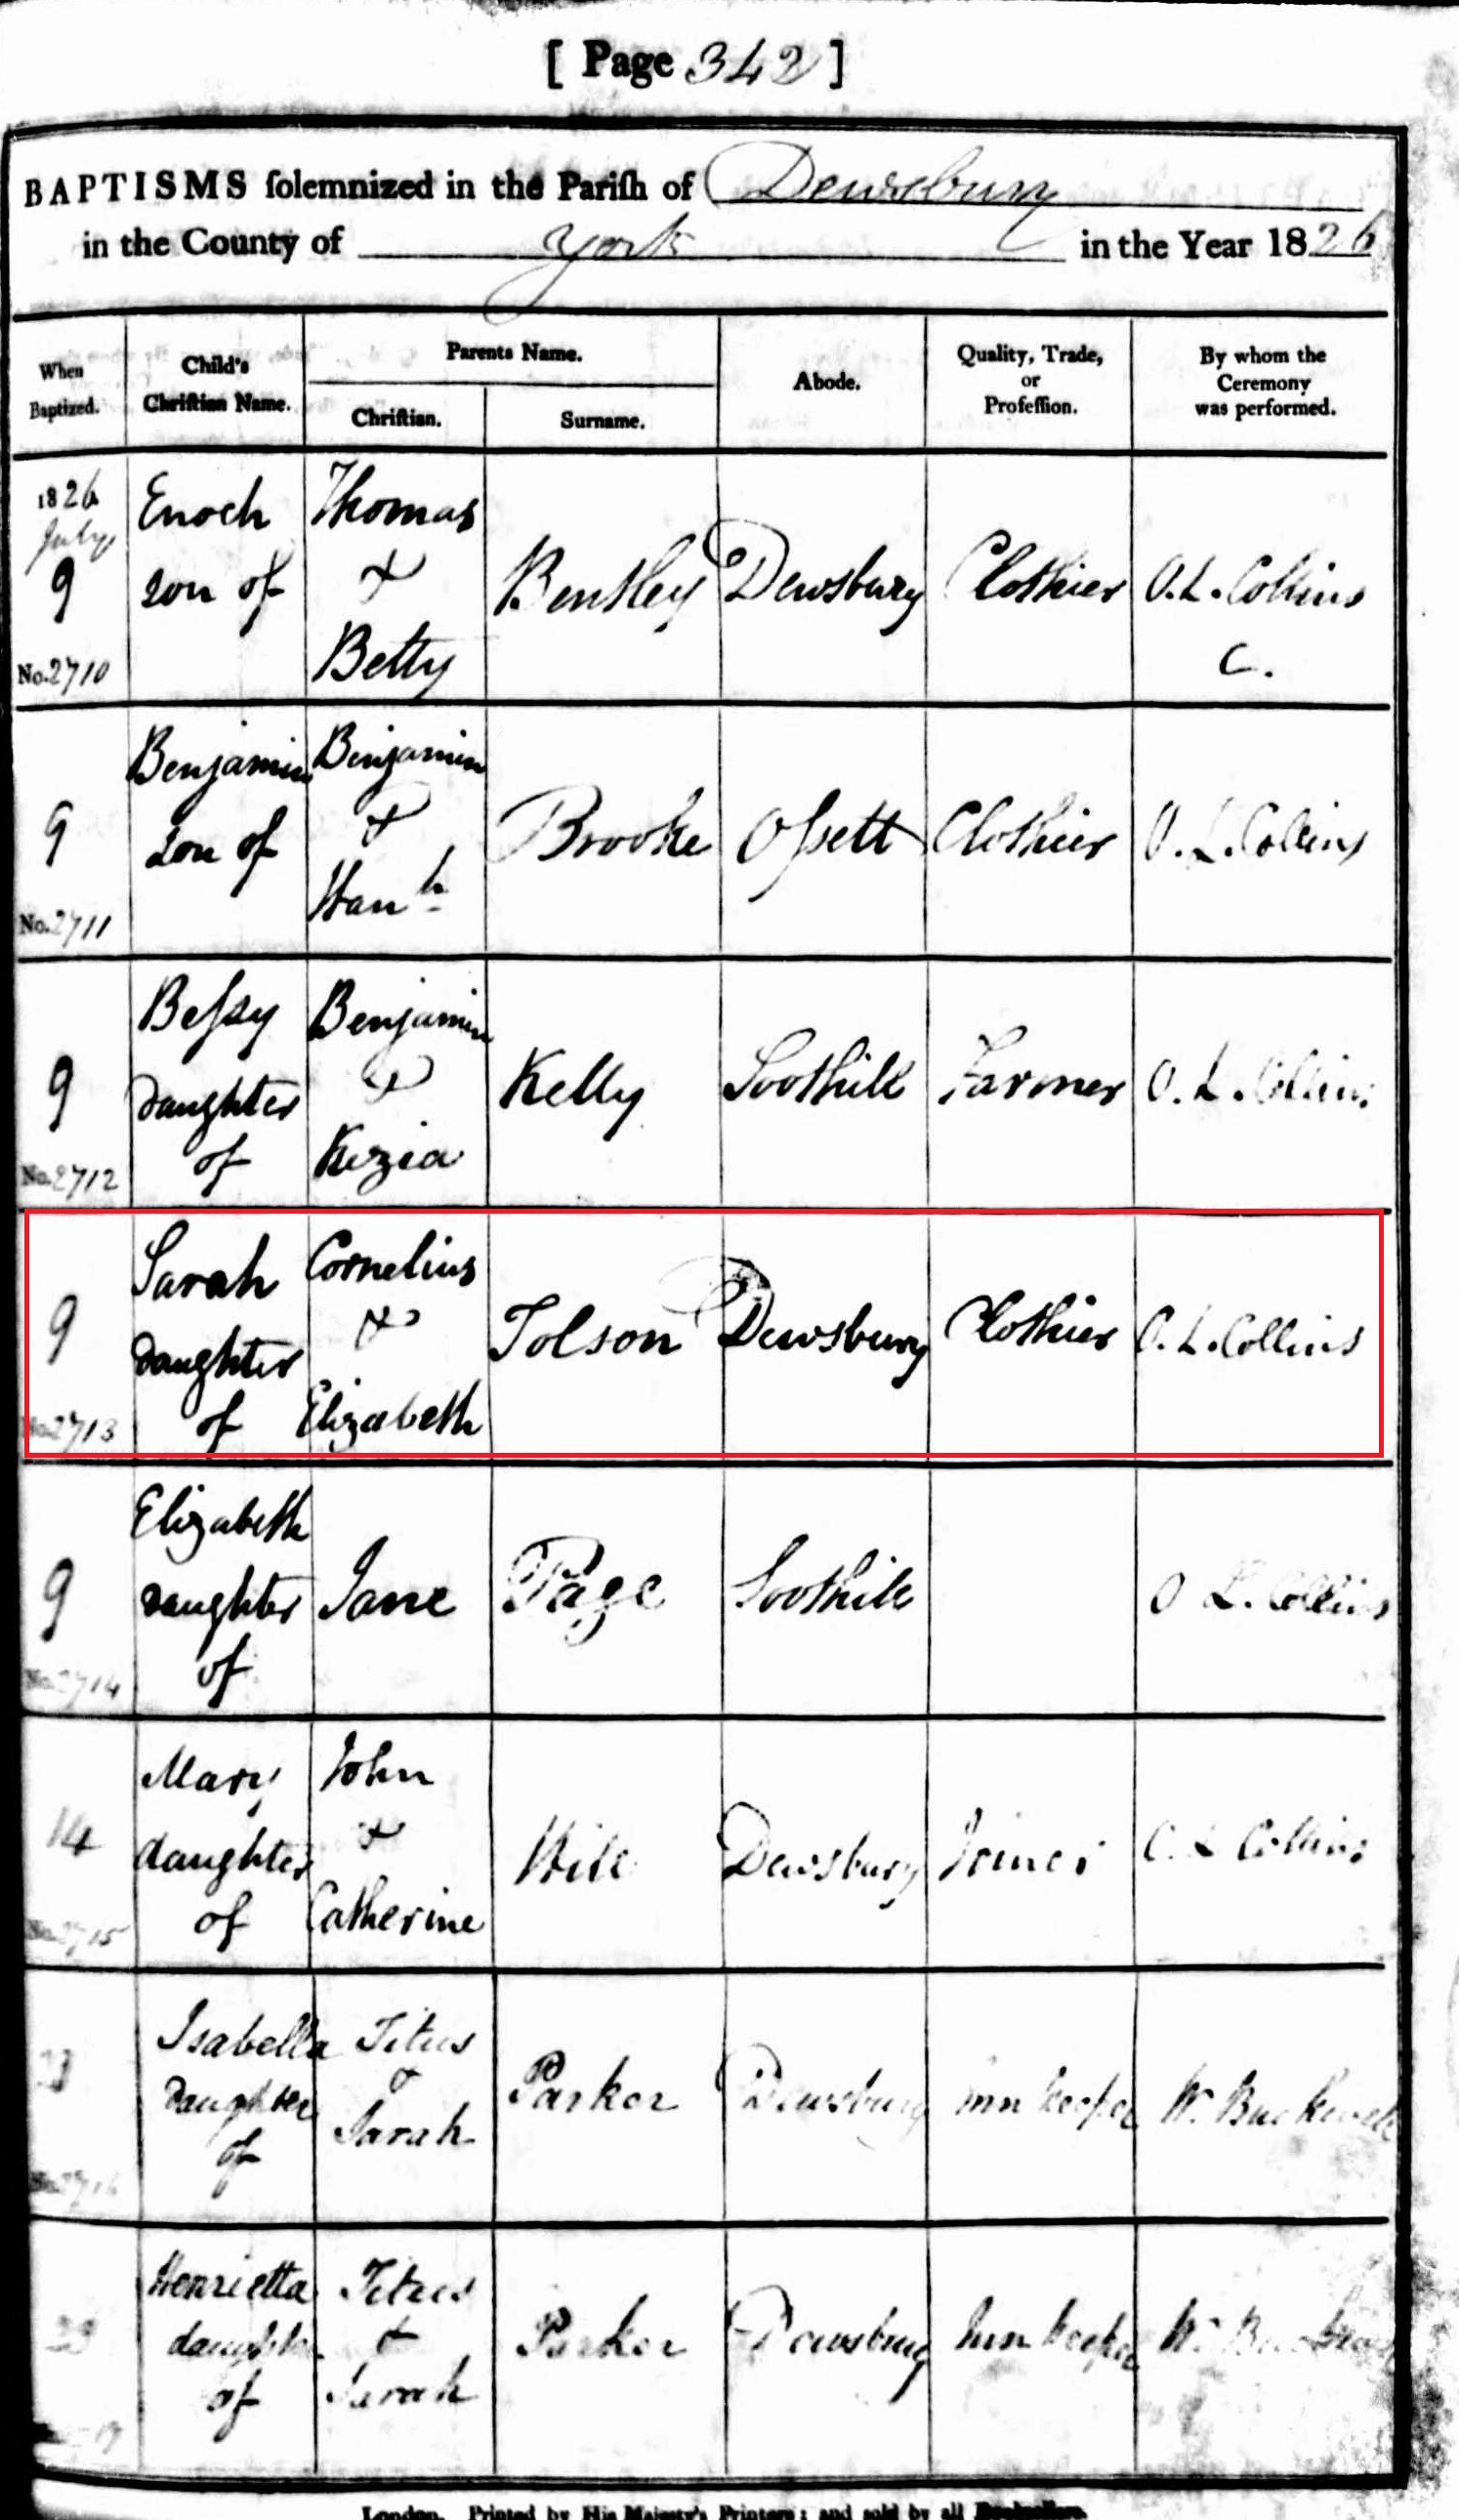 [ Page 342 ]
BAPTISMS solemnized in the Parish of Dewsbury
in the County of York in the Year 1826
When Baptized.
Child's Christian Name.
Parents Name.
Christian.
Surname.
Abode.
Quality, Trade, or Profession.
By whom the Ceremony was performed.
1826
July
9
No. 2710
Enoch
son of
Thomas
&
Betty
Bentley
Dewsbury
Clothier
O. L. Collins
C.
9
No. 2711
Benjamin
son of
Benjamin
&
Hanh
Brooke
Ossett
Clothier
O. L. Collins
9
No. 2712
Bessy
Daughter
of
Benjamin
&
Kezia
Kelly
Soothill
Farmer
O. L. Collins
9
No. 2713
Sarah
Daughter
of
Cornelius
&
Elizabeth
Tolson
Dewsbury
Clothier
O. L. Collins
9
No. 2714
Elizabeth
Daughter
of
Jane
Page
Soothill
O. L. Collins
14
No. 2715
Mary
daughter
of
John
&
Catherine
Hill
Dewsbury
Joiner
O. L. Collins
No. 2716
Isabella
Daughter
of
Titus
&
Sarah
Parker
Dewsbury
inn keeper
W.
Henrietta
daughter
of
Titus
&
Sarah
Parker
Dewsbury
Inn keeper
W.
London, Printed by His Majesty's Printers; and sold by all Booksellers.